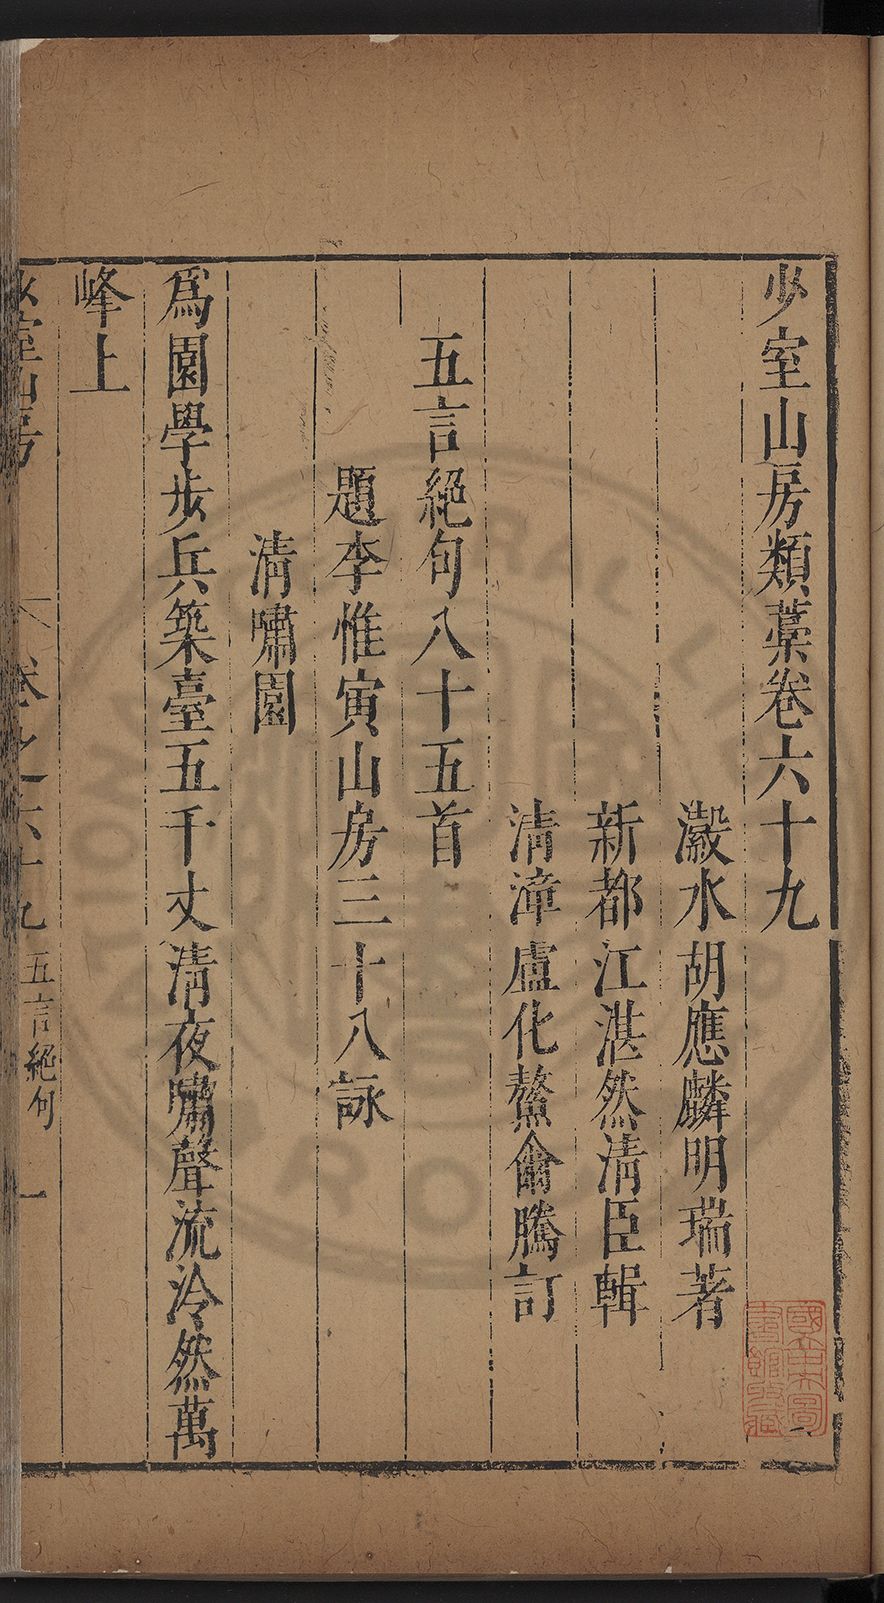 少室山房類藁卷六十九
瀫水胡應麟明瑞著
新都江湛然清臣輯
清漳盧化鰲侖騰訂
五言絕句八十五首
題李惟寅山房三十八詠
清嘯園
爲園學步兵築臺五千丈清夜嘯聲流泠然萬
峰上
少室山房 卷之六十九 五言絕句 一
國立中央圖書館收藏